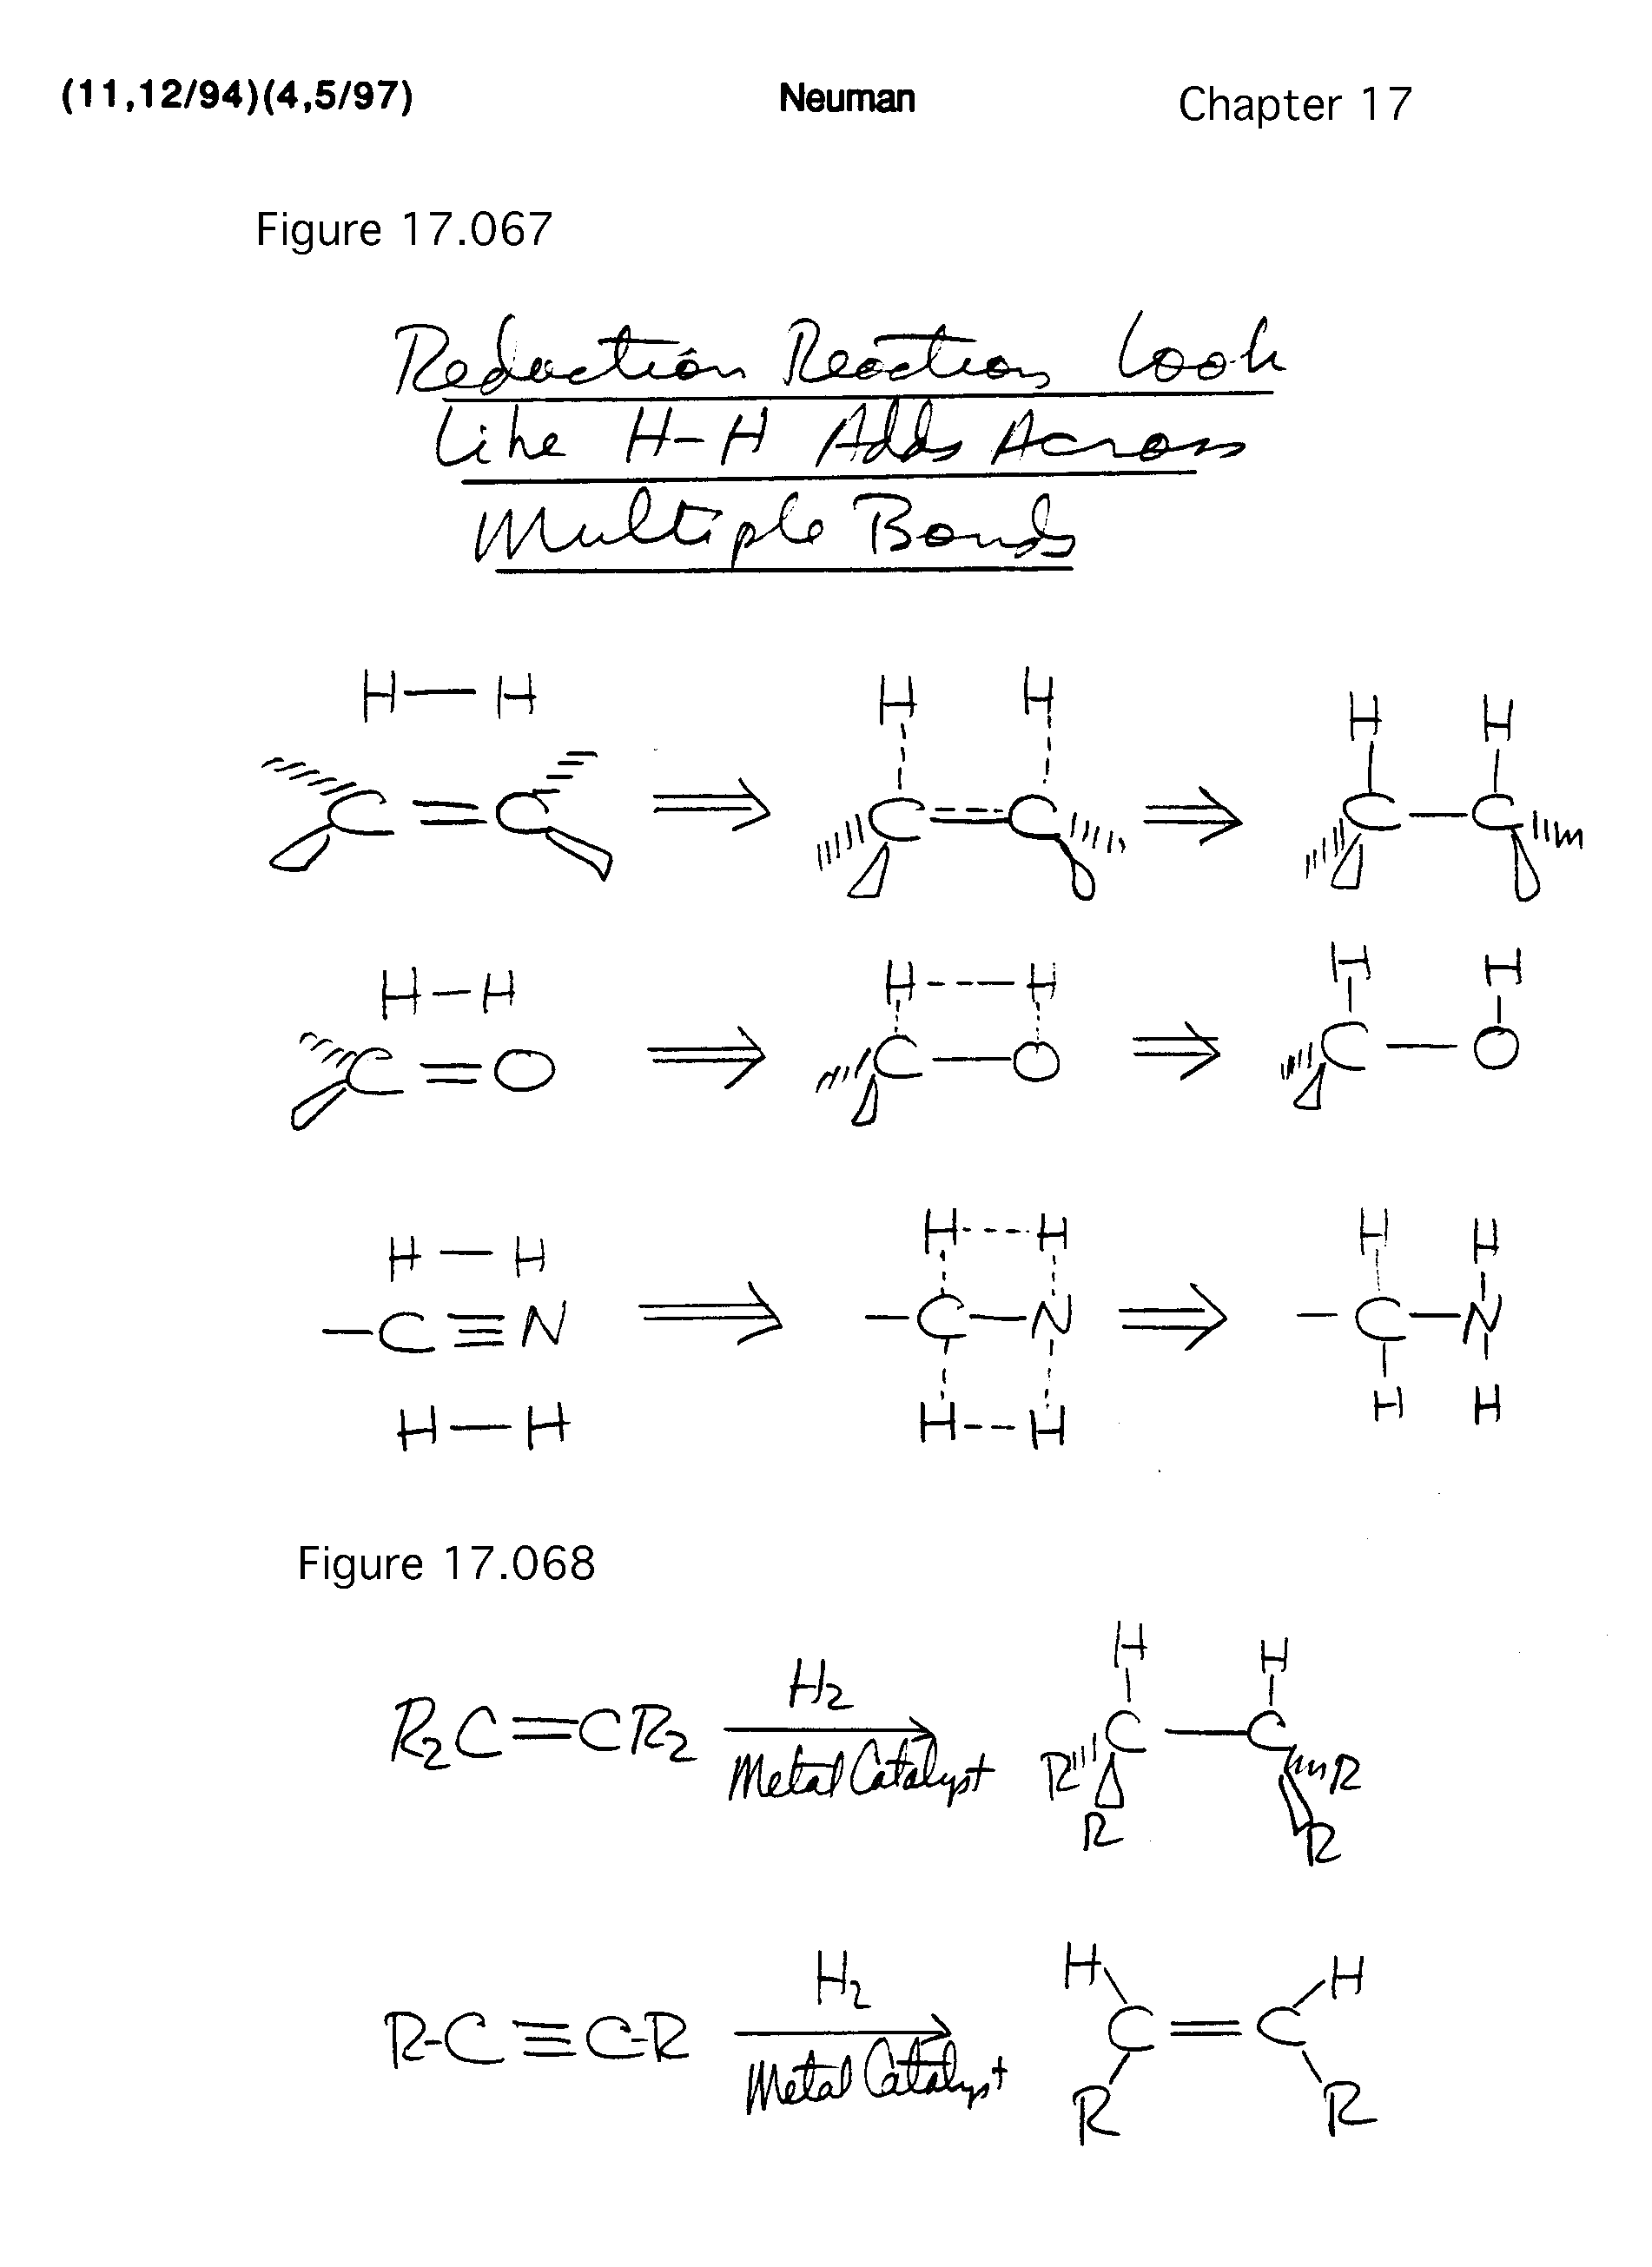 (11,12/94)(4,5/97) Neuman Chapter 17
Figure 17.067
Reduction Reactions Look
Like H-H Adds Across
Multiple Bonds
H—H H H H H
C=C ⇒ C=C ⇒ C—C
H—H H---H H H
C=O ⇒ C—O ⇒ C—O
H—H H---H H H
—C≡N ⇒ —C—N ⇒ —C—N
H—H H---H H H
Figure 17.068
H₂ H H
R₂C=CR₂ → C—C
Metal Catalyst R R
R R
H₂ H H
R-C≡C-R → C=C
Metal Catalyst R R